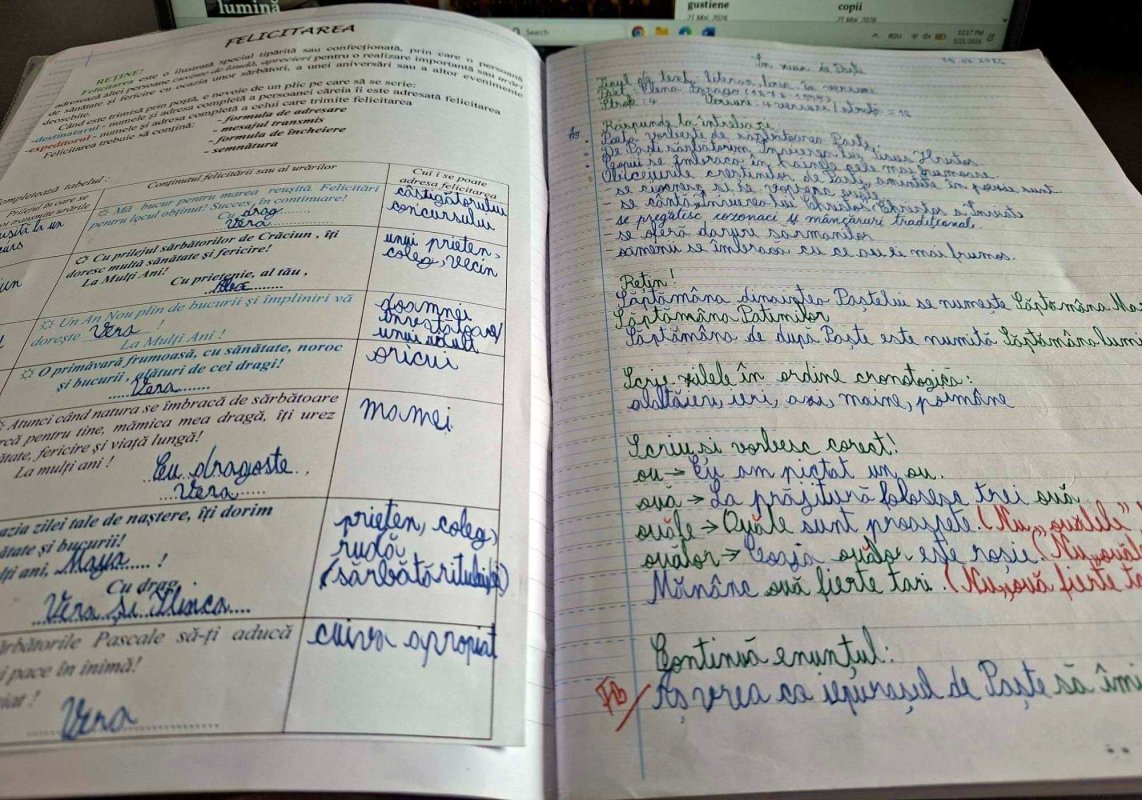 lumină
gustiene
21 Mai, 2026
copii
21 Mai, 2026
Search
ROU
12:57 PM
5/21/2026
FELICITAREA
REȚINE!
Felicitarea este o ilustrată special tipărită sau confecționată, prin care o persoană
adresează altei persoane cuvinte de laudă, aprecieri pentru o realizare importantă sau urări
de sănătate și fericire cu ocazia unor sărbători, a unei aniversări sau a altor evenimente
deosebite.
Când este trimisă prin poștă, e nevoie de un plic pe care să se scrie:
-destinatarul - numele și adresa completă a persoanei căreia îi este adresată felicitarea
-expeditorul - numele și adresa completă a celui care trimite felicitarea
Felicitarea trebuie să conțină:
- formula de adresare
- mesajul transmis
- formula de încheiere
- semnătura
tabelul :
Conținutul felicitării sau al urărilor
Cui i se poate
adresa felicitarea
Mă bucur pentru marea reușită. Felicitări
pentru locul obținut! Succes, în continuare!
Cu drag
Vera
câștigătorului
concursului
Cu prilejul sărbătorilor de Crăciun , îți
doresc multă sănătate și fericire!
La Mulți Ani!
Cu prietenie, al tău ,
Alex
unui prieten,
coleg, vecin
Un An Nou plin de bucurii și împliniri vă
dorește Vera !
La Mulți Ani !
doamnei
învățătoare/
unui adult
O primăvară frumoasă, cu sănătate, noroc
și bucurii , alături de cei dragi!
Vera
oricui
Atunci când natura se îmbracă de sărbătoare
pentru tine, mămica mea dragă, îți urez
fericire și viață lungă!
La mulți ani !
Cu dragoste
Vera
mamei
zilei tale de naștere, îți dorim
și bucurii!
ani, Maya !
Cu drag,
Vera și Ilinca
prieten, coleg,
rudă
Pascale să-ți aducă
pace în inimă!
Vera
cuiva apropiat
Elena Farago
Strofe: 4
Răspunde la întrebări:
De Paște sărbătorim Învierea lui Iisus Hristos.
Copiii se îmbracă în hainele cele mai frumoase.
Obiceiurile creștinilor de Paști, amintite în poezie sunt:
- se pregătesc cozonaci și mâncăruri tradiționale
- se oferă daruri sărmanilor
- oamenii se îmbracă cu ce au ei mai frumos.
Rețin!
Săptămâna dinaintea Paștelui se numește Săptămâna
Săptămâna Patimilor
Săptămâna de după Paște este numită Săptămâna
Scrie zilele în ordine cronologică:
alaltăieri, ieri, azi, maine, poimâne
Scriu și vorbesc corect!
ou → Eu am pictat un ou.
ouă → La prăjitură folosesc trei ouă
ouăle → Ouăle sunt proaspete. (Nu „ouălele"
ouălor → Coaja ouălor este roșie. (Nu
Mănânc ouă fierte tari. (Nu „ouă fierte
Continuă enunțul:
Aș vrea ca iepurașul de Paște să îmi
FB